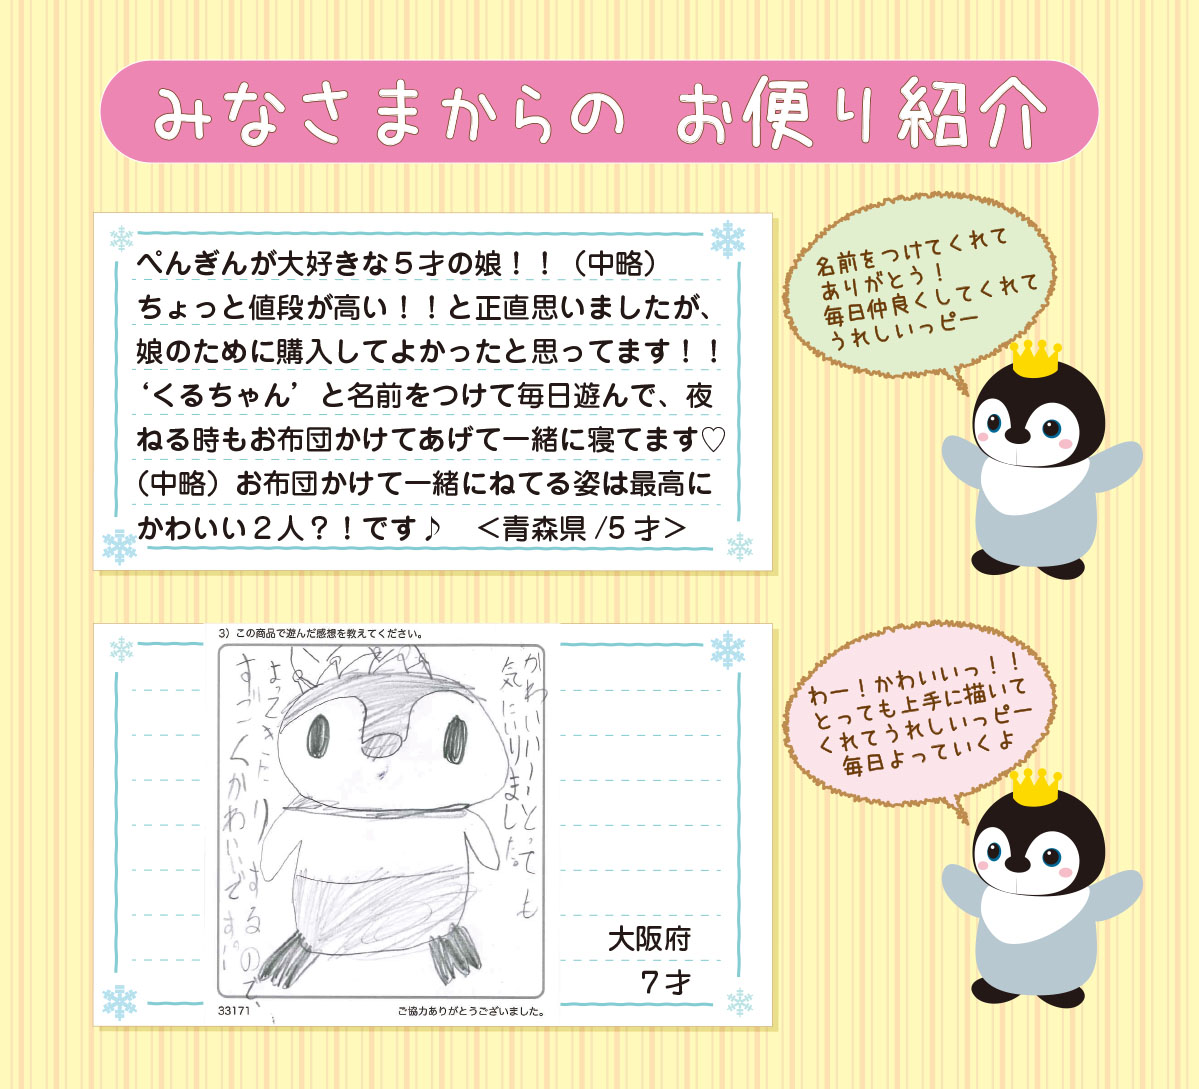 みなさまからの お便り紹介
ぺんぎんが大好きな５才の娘！！（中略）
ちょっと値段が高い！！と正直思いましたが、
娘のために購入してよかったと思ってます！！
‘くるちゃん’と名前をつけて毎日遊んで、夜
ねる時もお布団かけてあげて一緒に寝てます♡
（中略）お布団かけて一緒にねてる姿は最高に
かわいい２人？！です♪　＜青森県/5才＞
名前をつけてくれて
ありがとう！
毎日仲良くしてくれて
うれしいっピー
3）この商品で遊んだ感想を教えてください。
かわいいーーとっても
気にいりました。
よってきたりするので、
すごーくかわいいです。
33171
ご協力ありがとうございました。
大阪府
７才
わー！かわいいっ！！
とっても上手に描いて
くれてうれしいっピー
毎日よっていくよ